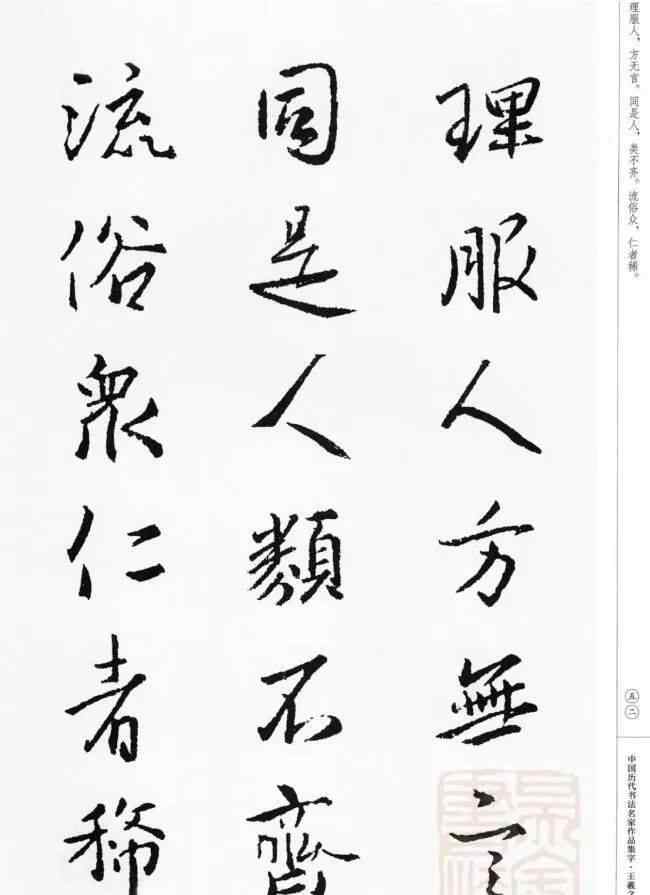 理服人，方无言。同是人，类不齐。流俗众，仁者稀。
五二
中国历代书法名家作品集字·王羲之
理服人方無言
同是人類不齊
流俗眾仁者稀